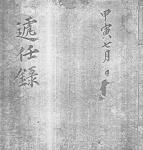 甲寅七月 日
遞任錄